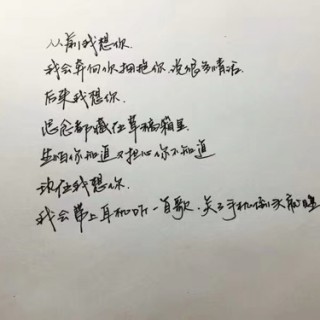 从前我想你.
我会奔向你拥抱你.说很多情话.
后来我想你.
思念都藏在草稿箱里
生怕你知道又担心你不知道
现在我想你.
我会带上耳机听一首歌.关了手机倒头就睡